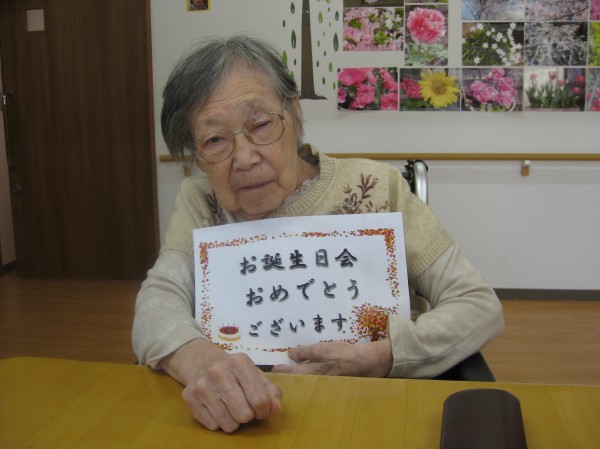 お誕生日会
おめでとう
ございます